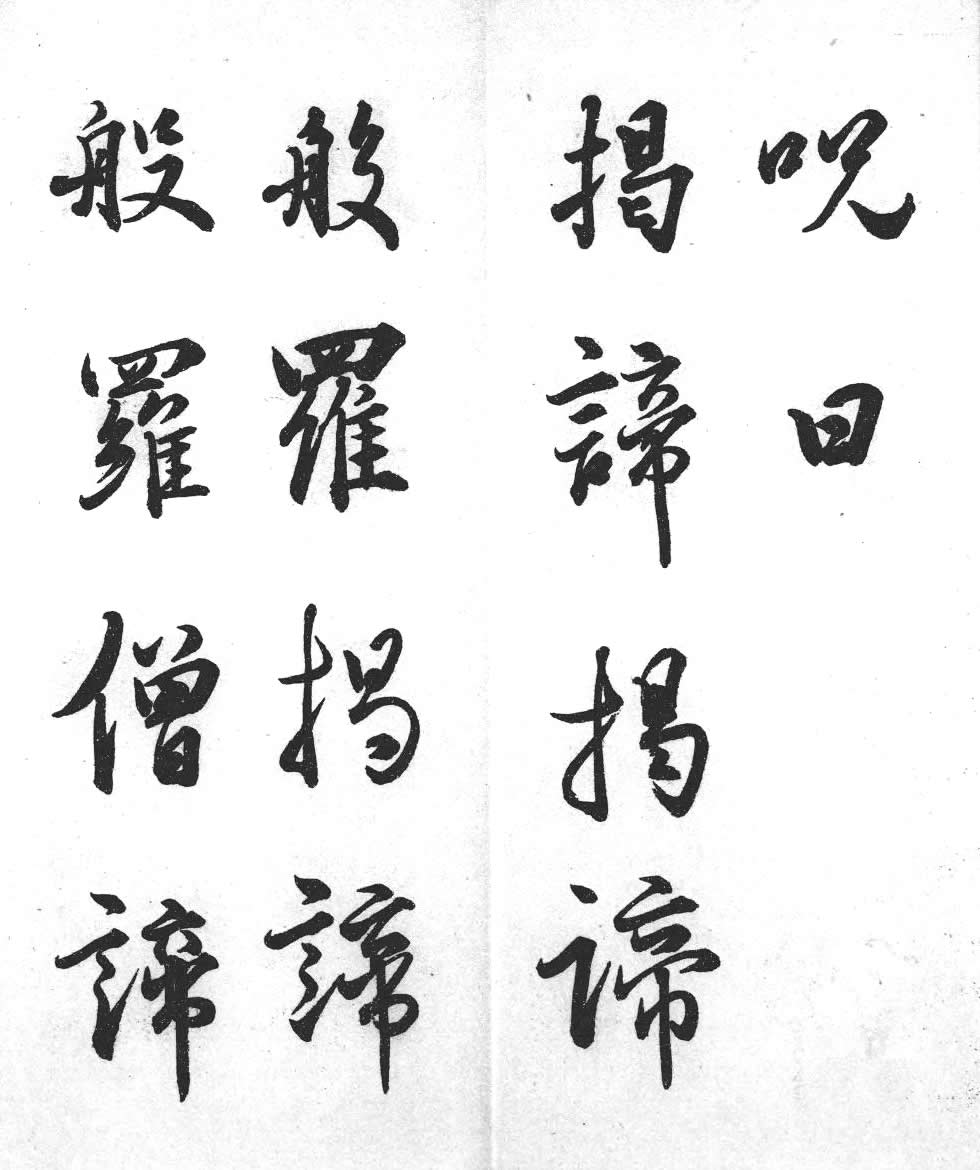 呪曰
揭諦揭諦
般羅揭諦
般羅僧諦